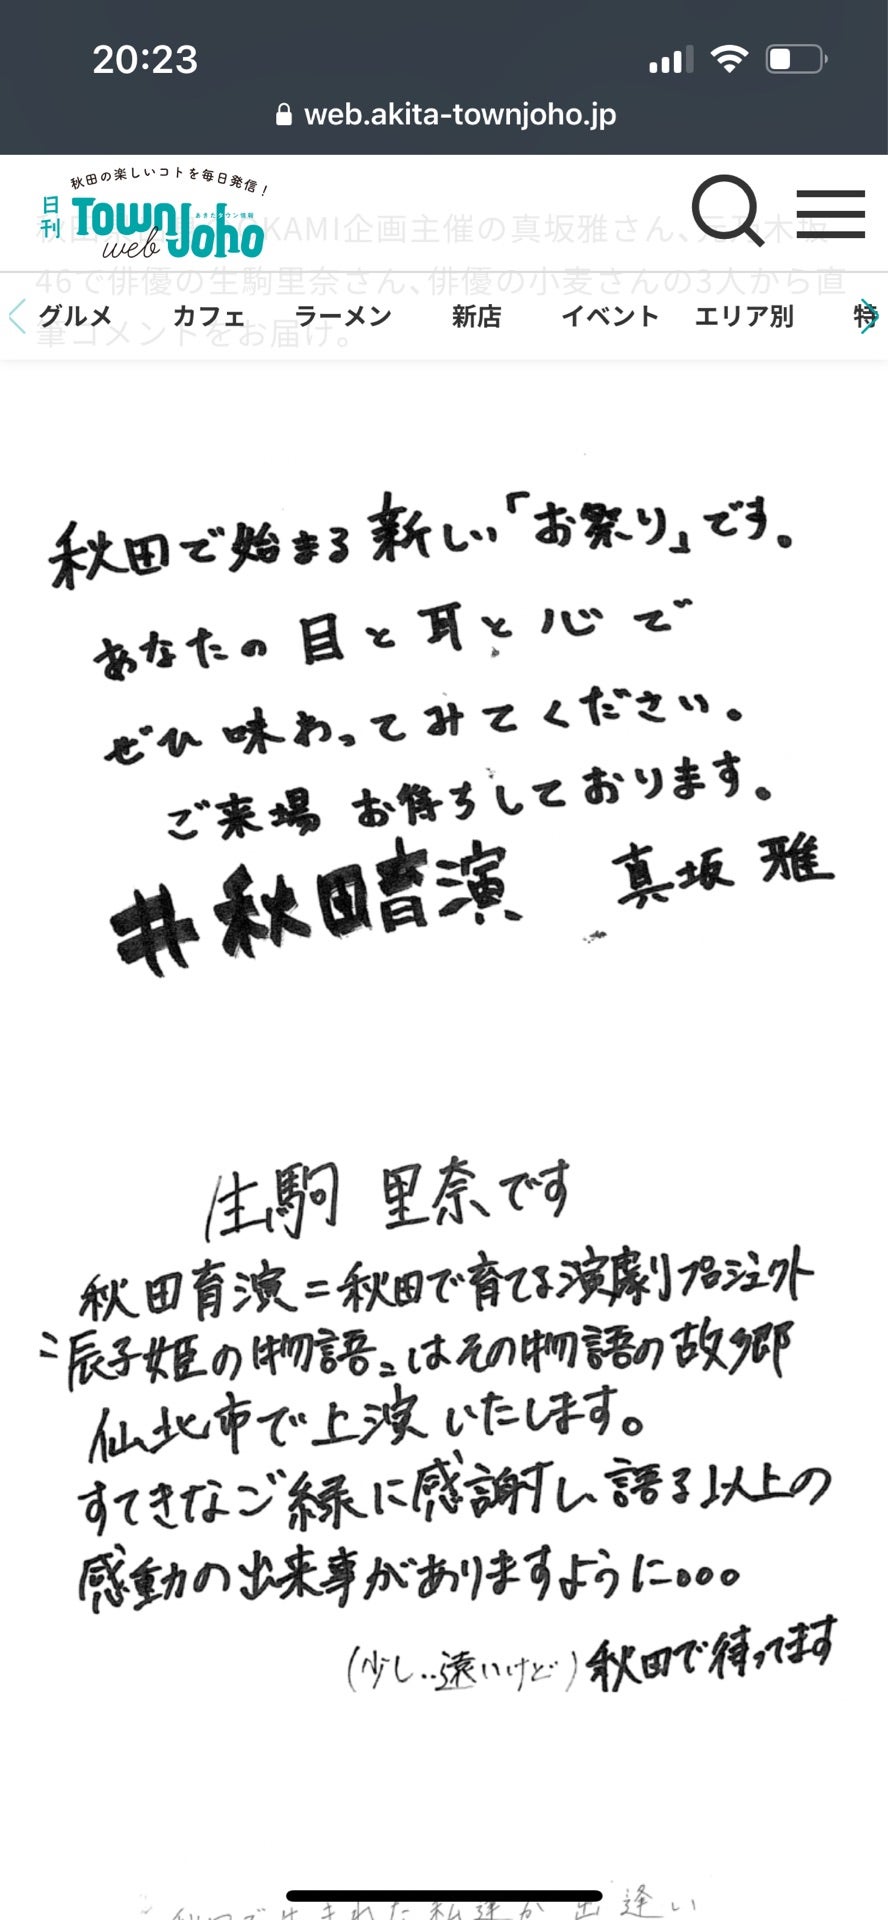 20:23
web.akita-townjoho.jp
秋田の楽しいコトを毎日発信！
日刊 Town Joho web
あきたタウン情報
KAMI企画主催の真坂雅さん、元乃木坂
46で俳優の生駒里奈さん、俳優の小麦さんの3人から直
筆コメントをお届け。
グルメ カフェ ラーメン 新店 イベント エリア別 特
秋田で始まる新しい「お祭り」です。
あなたの目と耳と心で
ぜひ味わってみてください。
ご来場お待ちしております。
#秋田育演 真坂 雅
生駒 里奈です
秋田育演=秋田で育てる演劇プロジェクト
〝辰子姫の物語〟はその物語の故郷
仙北市で上演いたします。
すてきなご縁に感謝し、語る以上の
感動の出来事がありますように。。。
(少し..遠いけど)秋田で待ってます
秋田で生まれた私達が出逢い